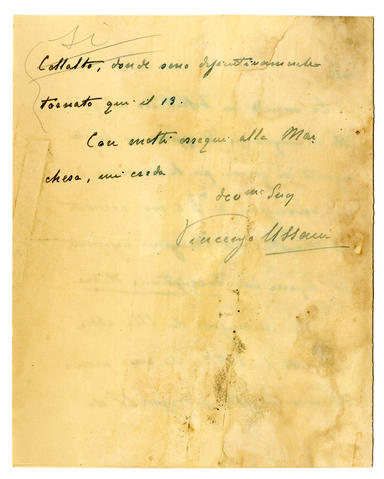 Si
Collalto, donde sono definitivamente
tornato qui il 13.
Con molti ossequi alla Mar
chesa, mi creda
dev.mo Suo
Vincenzo Ussani